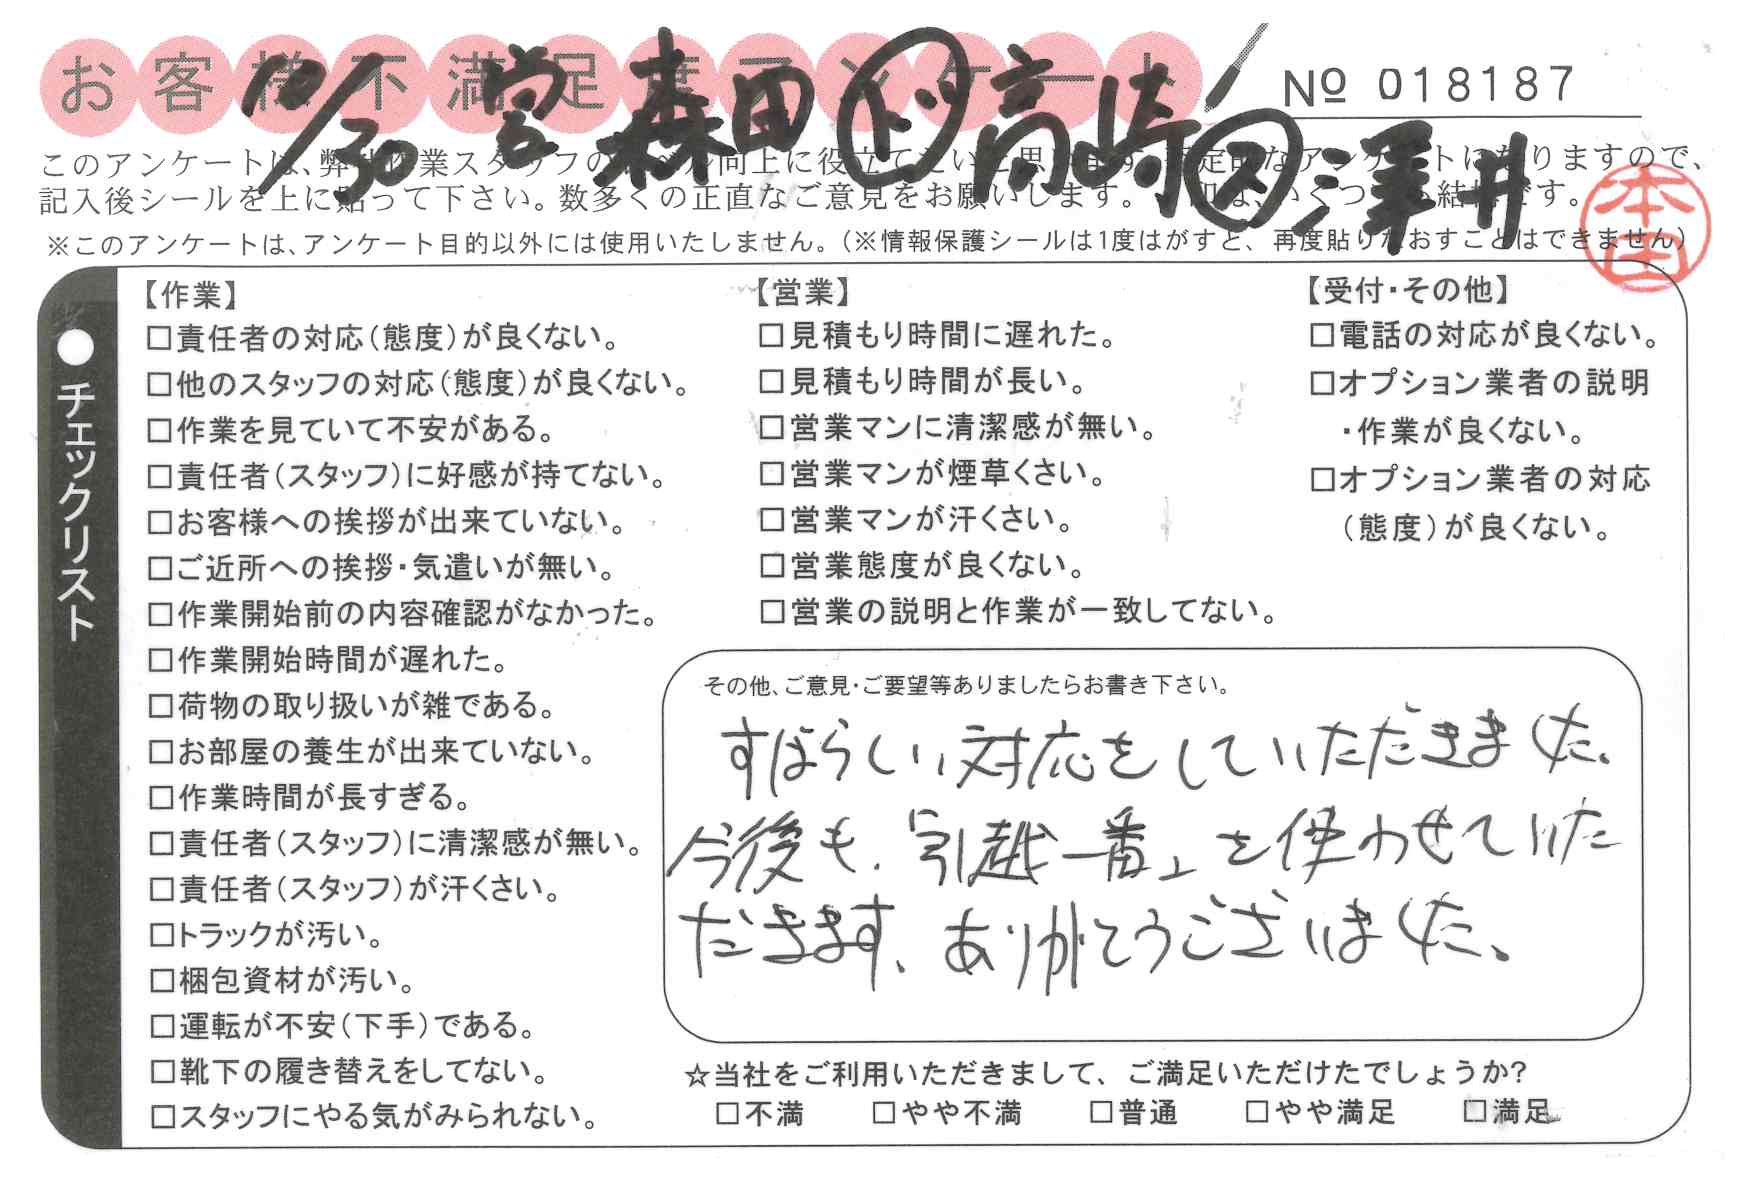 お客様不満足度アンケート
№ 018187
10/30 営 森田 下 高崎 又 澤井
このアンケートは、弊社作業スタッフのレベル向上に役立てたいと思います。否定的なアンケートになりますので、
記入後シールを上に貼って下さい。数多くの正直なご意見をお願いします。 印は、いくつでも結構です。
本田
※このアンケートは、アンケート目的以外には使用いたしません。(※情報保護シールは1度はがすと、再度貼りなおすことはできません)
●チェックリスト
【作業】
□責任者の対応(態度)が良くない。
□他のスタッフの対応(態度)が良くない。
□作業を見ていて不安がある。
□責任者(スタッフ)に好感が持てない。
□お客様への挨拶が出来ていない。
□ご近所への挨拶・気遣いが無い。
□作業開始前の内容確認がなかった。
□作業開始時間が遅れた。
□荷物の取り扱いが雑である。
□お部屋の養生が出来ていない。
□作業時間が長すぎる。
□責任者(スタッフ)に清潔感が無い。
□責任者(スタッフ)が汗くさい。
□トラックが汚い。
□梱包資材が汚い。
□運転が不安(下手)である。
□靴下の履き替えをしてない。
□スタッフにやる気がみられない。
【営業】
□見積もり時間に遅れた。
□見積もり時間が長い。
□営業マンに清潔感が無い。
□営業マンが煙草くさい。
□営業マンが汗くさい。
□営業態度が良くない。
□営業の説明と作業が一致してない。
【受付・その他】
□電話の対応が良くない。
□オプション業者の説明
・作業が良くない。
□オプション業者の対応
(態度)が良くない。
その他、ご意見・ご要望等ありましたらお書き下さい。
すばらしい対応をしていただきました。
今後も、「引越一番」を使わせていた
だきます、ありがとうございました。
☆当社をご利用いただきまして、ご満足いただけたでしょうか?
□不満 □やや不満 □普通 □やや満足 □満足